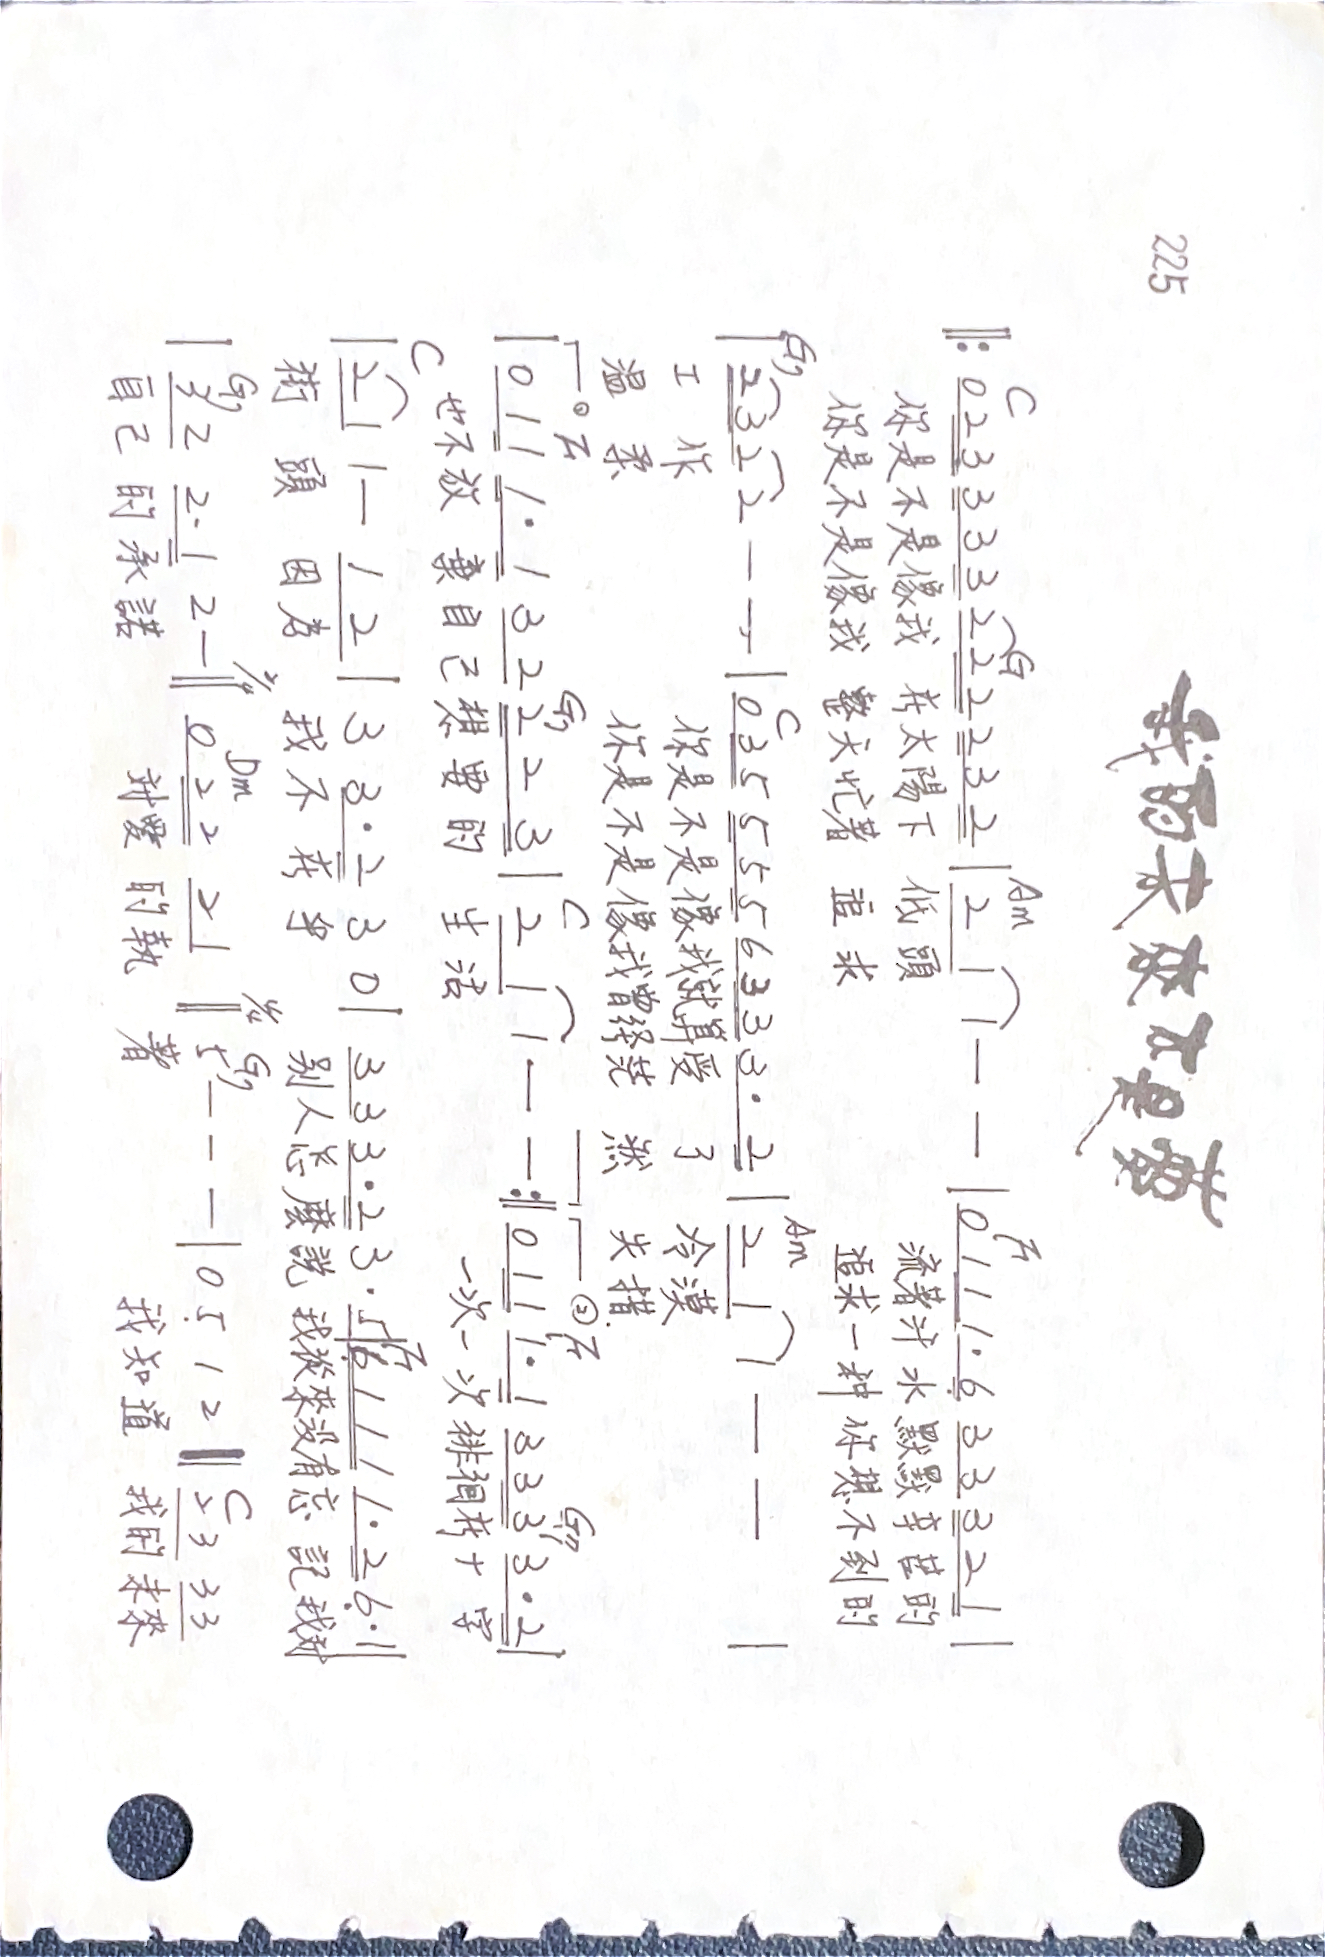 225
我的未來不是夢
C G Am F
0 2 3 3 3 3 2 2 2 2 3 2 | 2 1 1 — — | 0 1 1 1 · 6 3 3 3 2 1 |
你是不是像我 在太陽下 低頭 流著汗水 默默辛苦的
你是不是像我 整天忙著 追求 追求一种 你想不到的
G7 C Am
| 2 3 2 2 — — — | 0 3 5 5 5 5 6 3 3 3 · 2 | 2 1 1 — — |
工作 你是不是像我就算受了 冷漠
温柔 你是不是像我曾经茫然 失措.
① F G7 C ② F G7
| 0 1 1 1 · 1 3 2 2 2 3 | 2 1 1 · — — :‖ 0 1 1 1 · 1 3 3 3 3 · 2 |
也不放棄自己想要的 生活 一次一次徘徊在十字
C F
| 2 1 1 — 1 2 | 3 3 · 2 3 0 | 3 3 3 · 2 3 · 5 | 6 1 1 1 1 · 2 6 · 1 |
街頭 因為 我不在乎 别人怎麼説 我從來没有忘記我对
G7 2/4 Dm 4/4 G7 C
| 3 2 2 · 1 2 — ‖ 0 2 2 2 1 ‖ 5 — — — | 0 5 1 2 ‖ 2 3 3 3
自己的承諾 对愛的執 著 我知道 我的未來